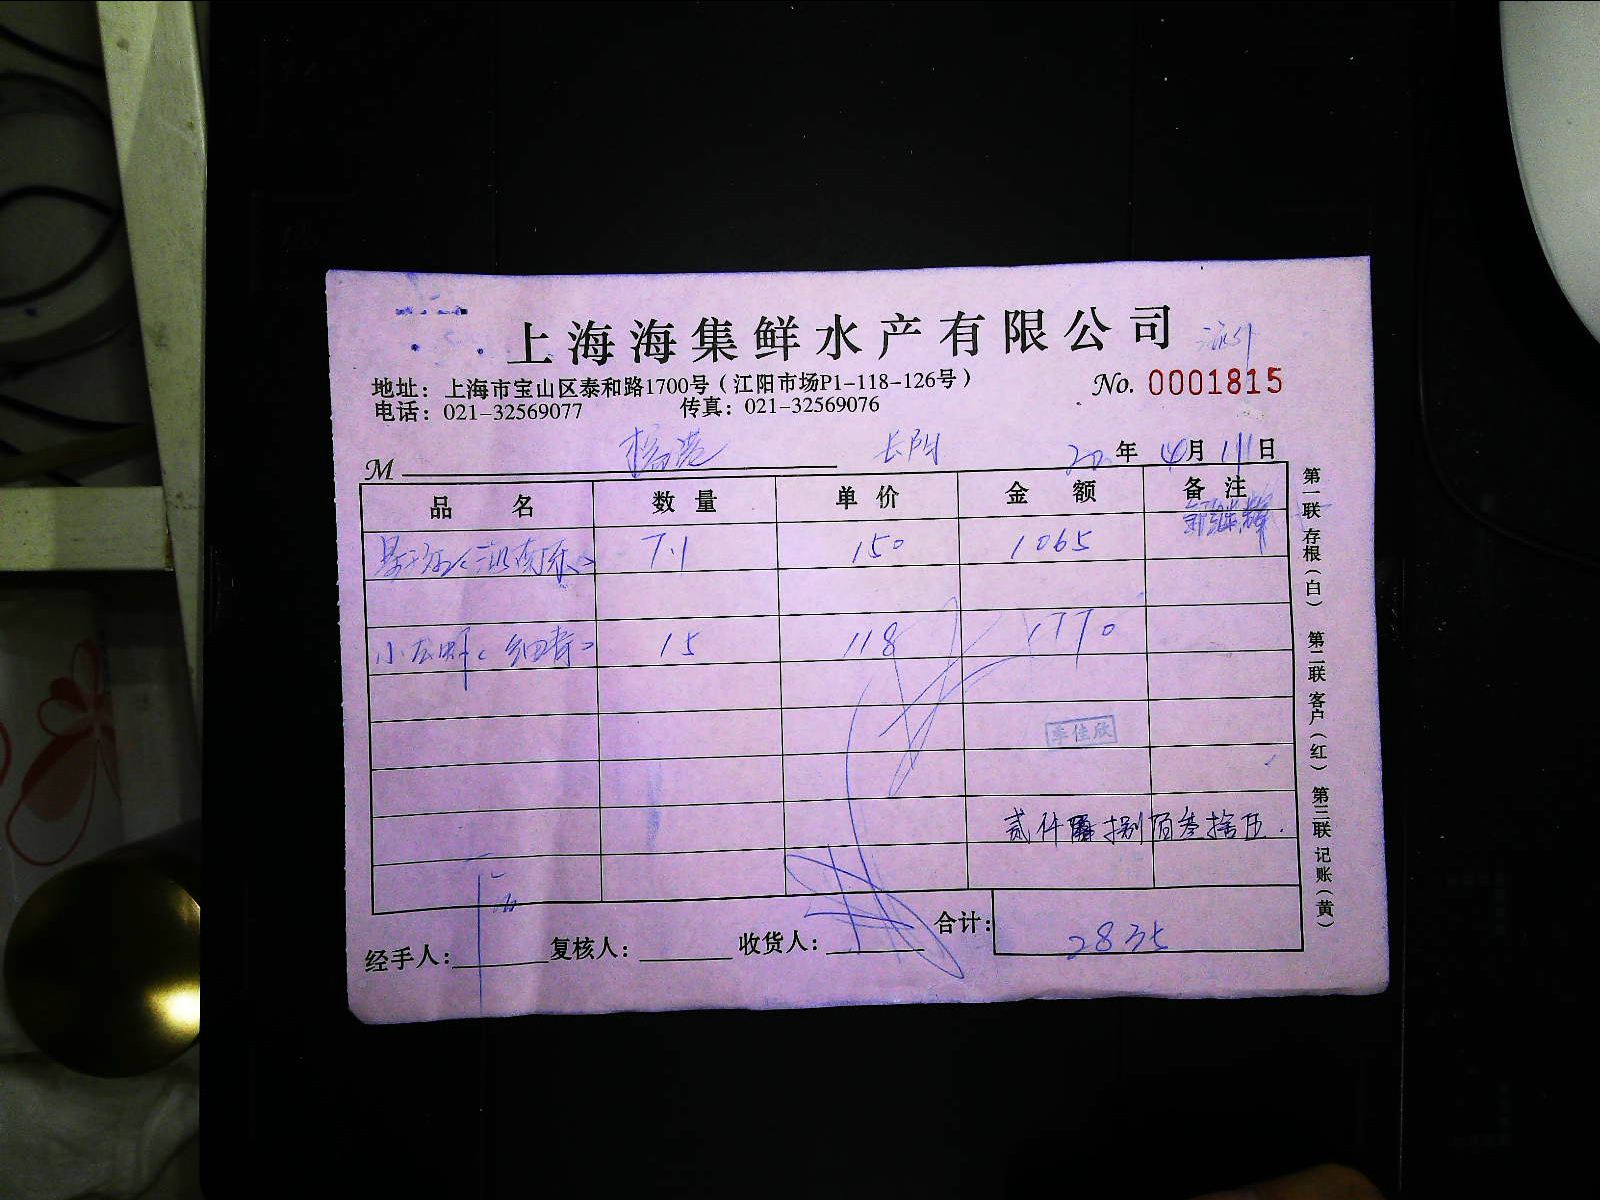 上海海集鲜水产有限公司
地址：上海市宝山区泰和路1700号（江阳市场P1-118-126号）
No. 0001815
电话：021-32569077 传真：021-32569076
M 长阳 年 4月 11日
品名 数量 单价 金额 备注
7.1 150 1065
小龙虾(细青) 15 118 1770
李佳欣
贰仟 捌佰叁拾伍.
经手人： 复核人： 收货人： 合计： 2835
第一联 存根（白） 第二联 客户（红） 第三联 记账（黄）